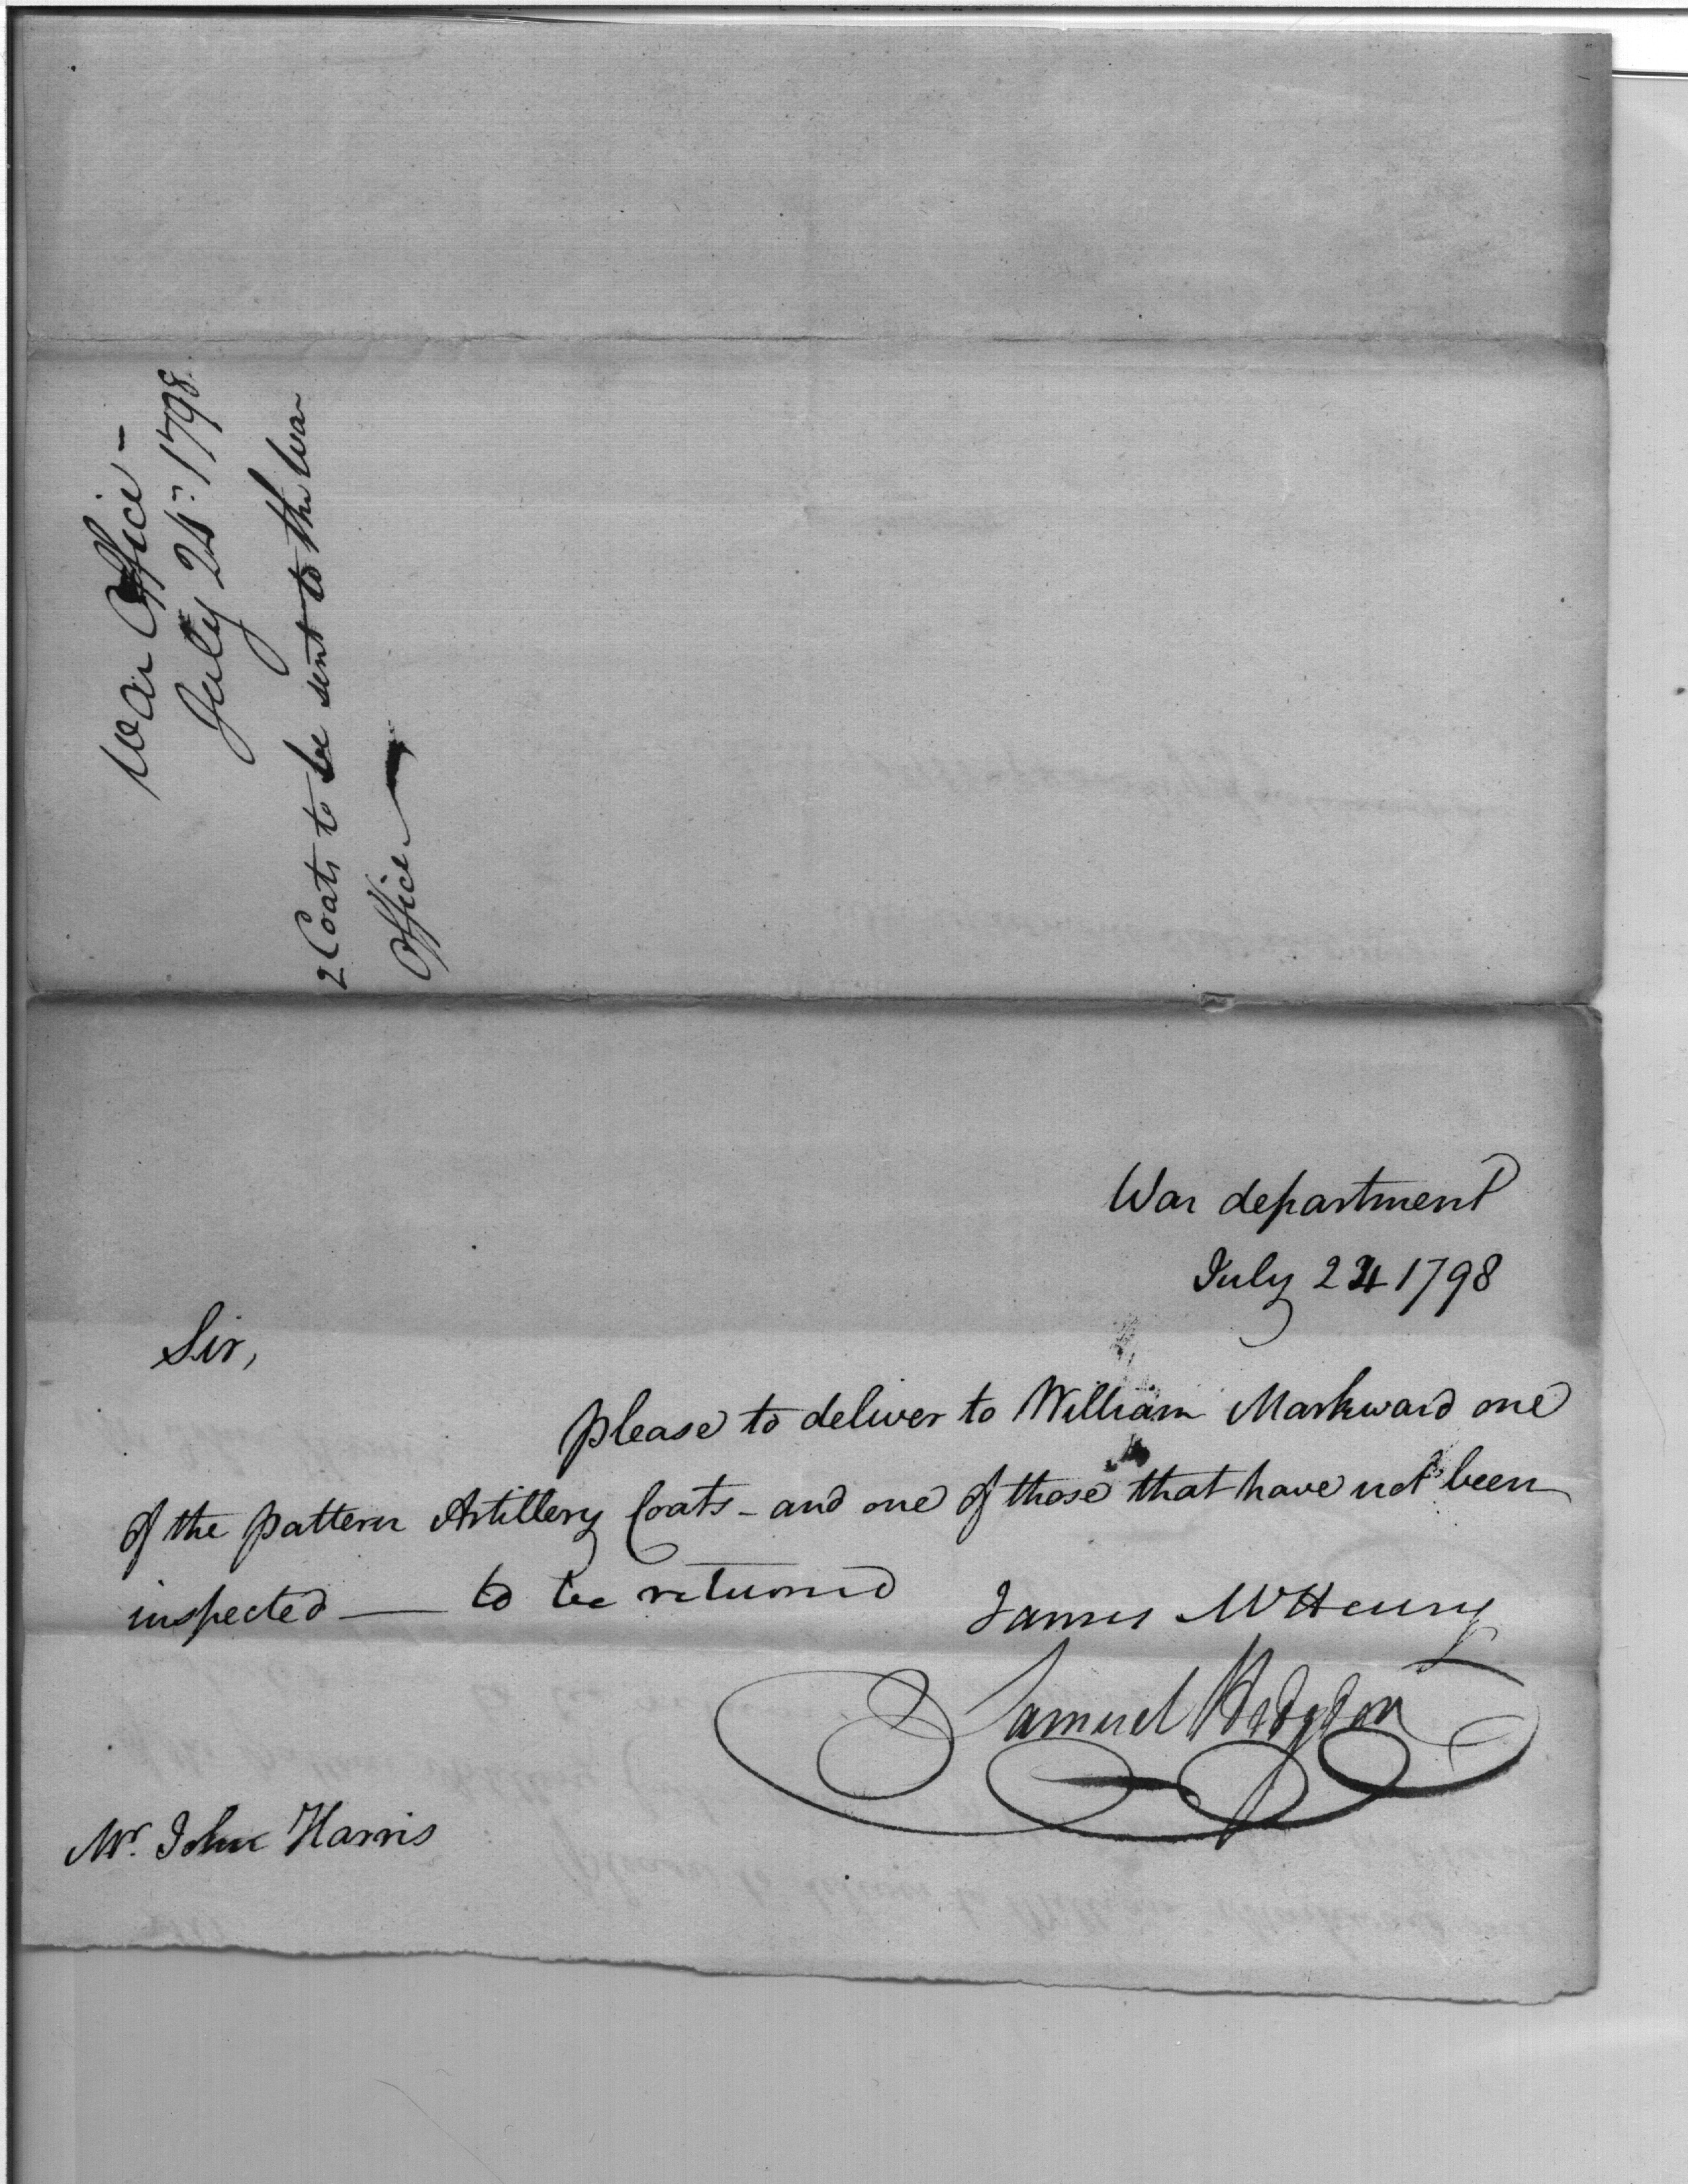 War Office -
July 24th 1798.
2 Coats to be sent to the War
Office
War department
July 24 1798
Sir,
please to deliver to William Markward one
of the pattern Artillery Coats - and one of those that have not been
inspected — to be returned
James McHenry
Samuel Hodgdon
Mr. John Harris